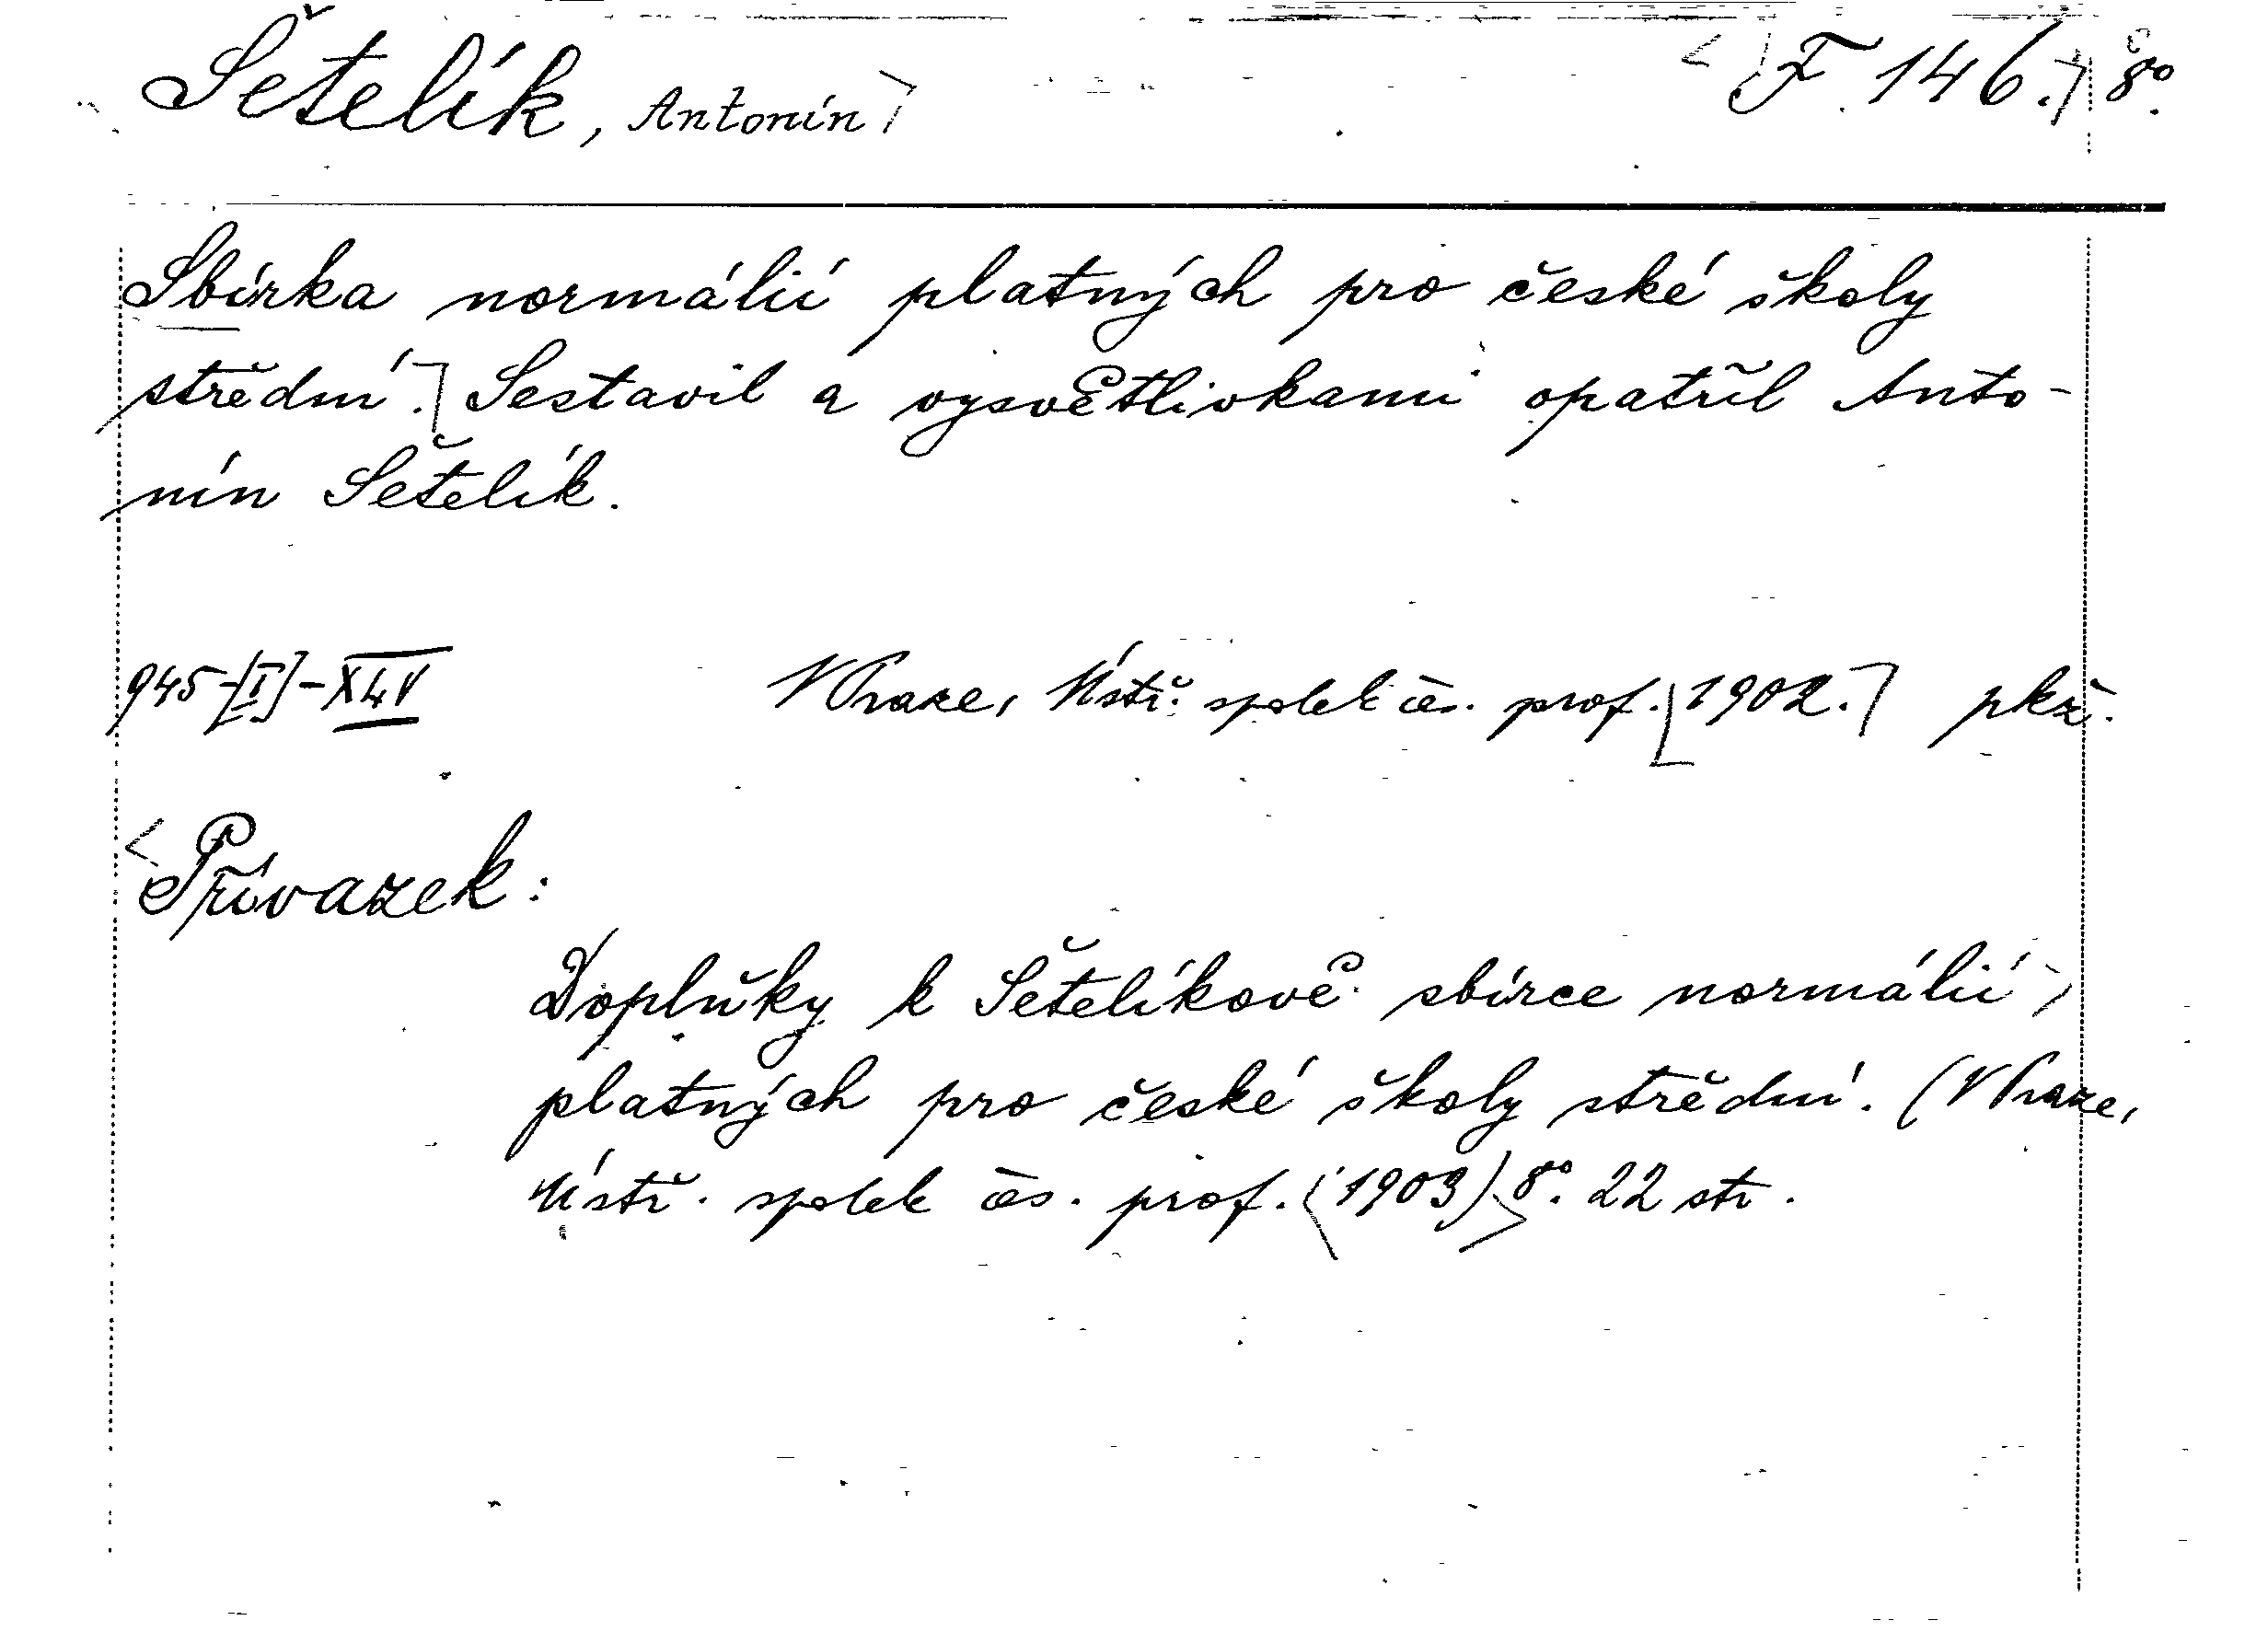 Šetelík, Antonín F. 146. 8°.
Sbírka normálií platných pro české školy
střední. Sestavil a vysvětlivkami opatřil Anto-
nín Šetelík.
945-[I]-XLV V Praze, Ústř. spolek čes. prof. 1902. pkž.
Přívazek:
Doplňky k Šetelíkově sbírce normálií
platných pro české školy střední. (V Praze,
Ústř. spolek čes. prof. 1903) 8°. 22 str.